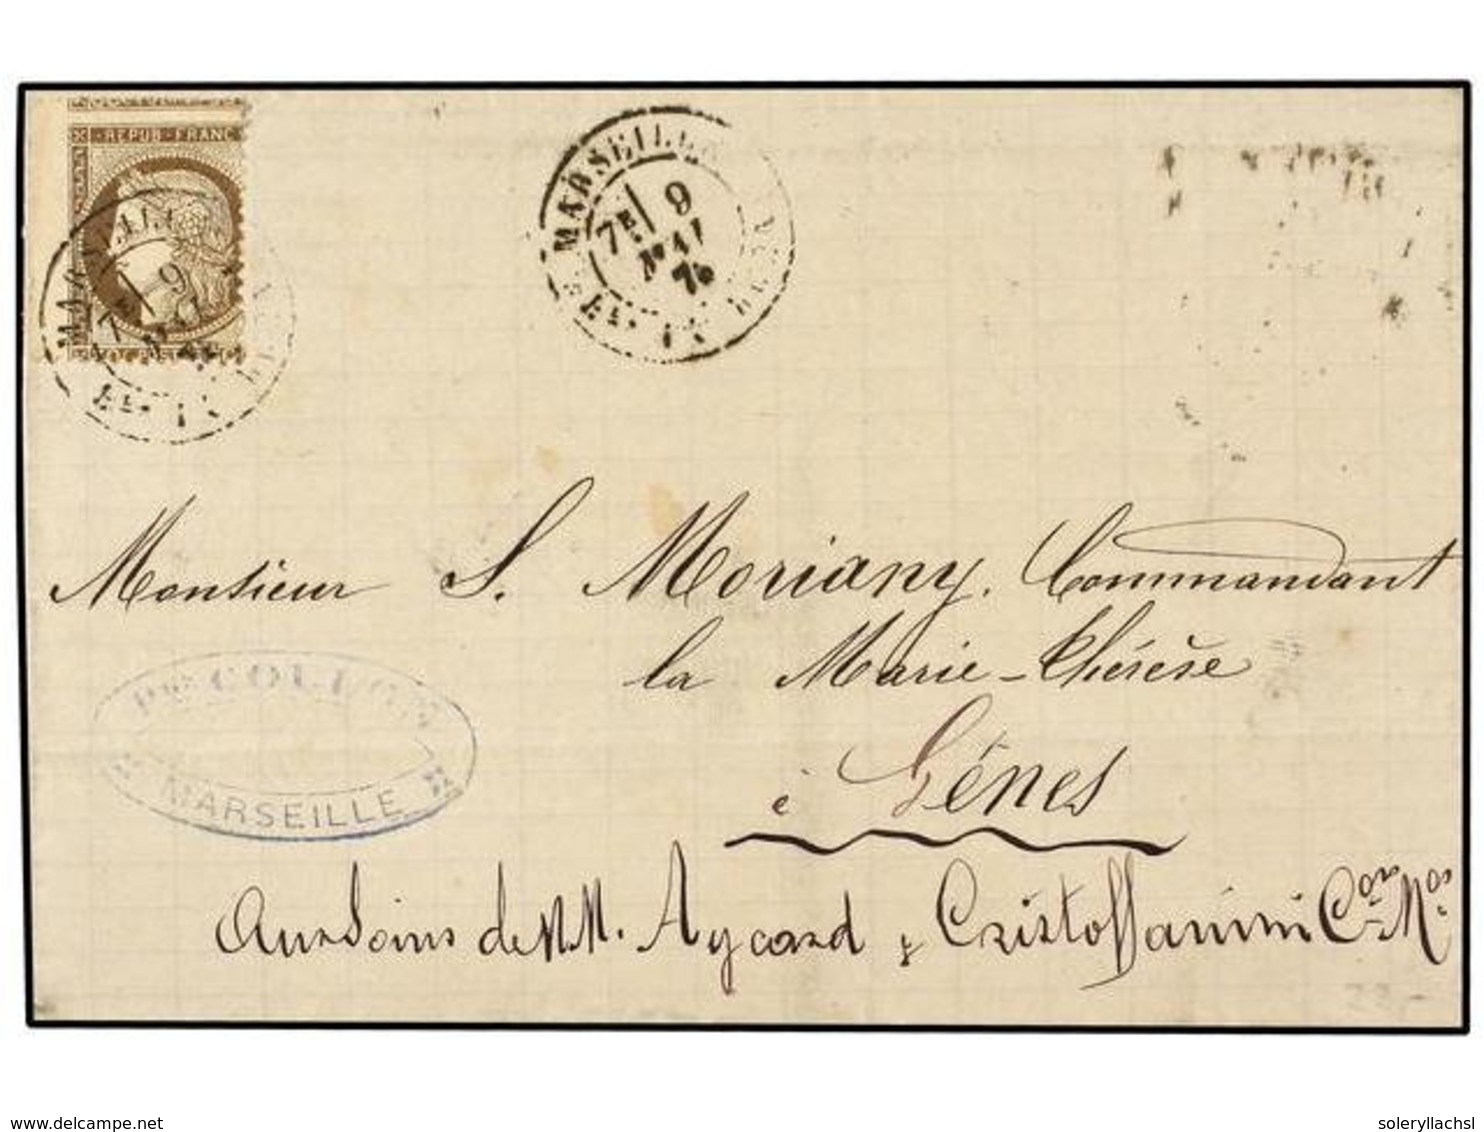 REPUB · FRANC
POST
MARSEILLE
7E 9
MAI
76
MARSEILLE
7E 9
MAI
Monsieur S. Moriany. Commandant
la Marie-Thérèse
à Gênes
MARSEILLE
Aux soins de MM. Aycard & Cristoffanini Cors Mos
delcampe.net
soleryllachsl